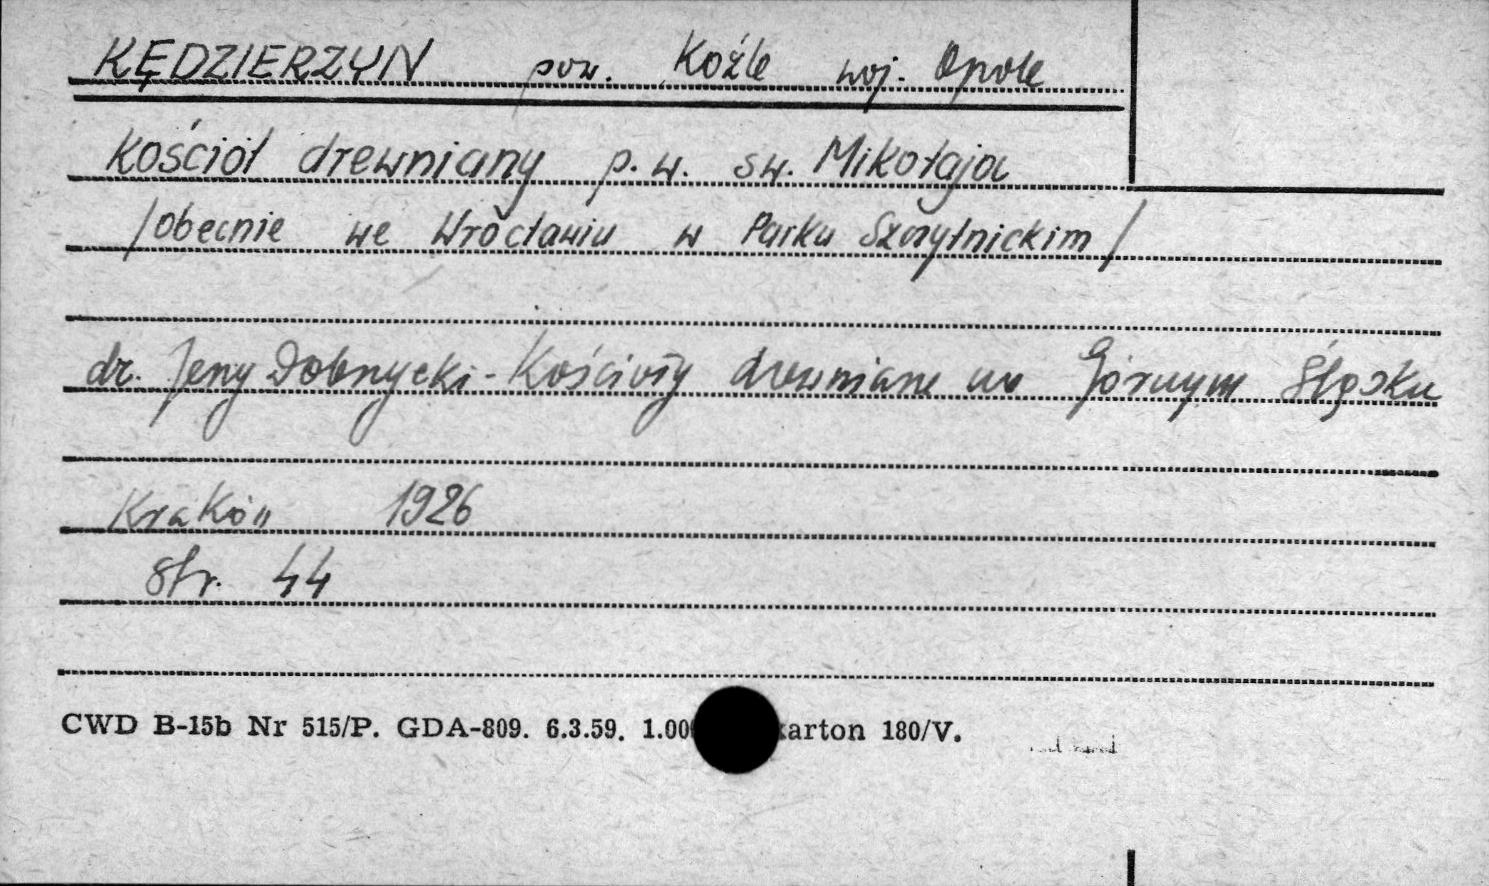 KĘDZIERZYN pow. Koźle woj. Opole
Kościół drewniany p.w. św. Mikołaja
/obecnie we Wrocławiu w Parku Szczytnickim/
dr. Jerzy Dobrzycki - Kościoły drewniane na Górnym Śląsku
Kraków 1926
Str. 44
CWD B-15b Nr 515/P. GDA-809. 6.3.59. 1.00 arton 180/V.